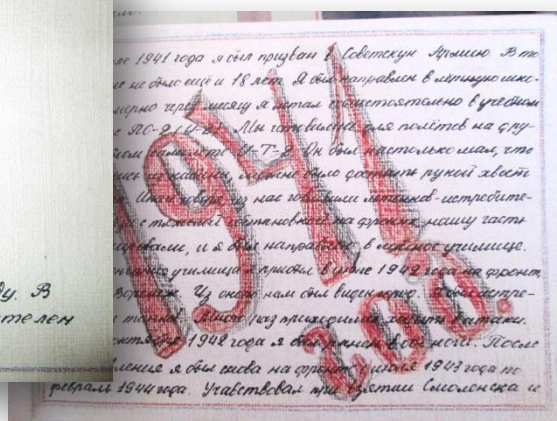 ле 1941 года я был призван в Советскую Армию. В то
не было ещё и 18 лет. Я был направлен в лётную шко-
мерно через месяц я летал самостоятельно в учебном
ПО-2 (У-2). Мы готовились для полётов на дру-
самолёте У-Т-2 Он был настолько мал, что
из кабины, можно было достать рукой хвост
из нас готовили лётчиков-истребите-
с тяжёлой обстановкой на фронте, нашу часть
и я был направлен в училище.
училища я прибыл в июне 1942 года на фронт,
Воронеж. Из окна нам был виден город. Я был
раз приходилось ходить в атаки.
1942 года я был ранен в обе ноги. После
я был снова на фронте с июля 1943 года по
февраль 1944 года. Участвовал при взятии Смоленска и
1941
год.
ду. В
телен